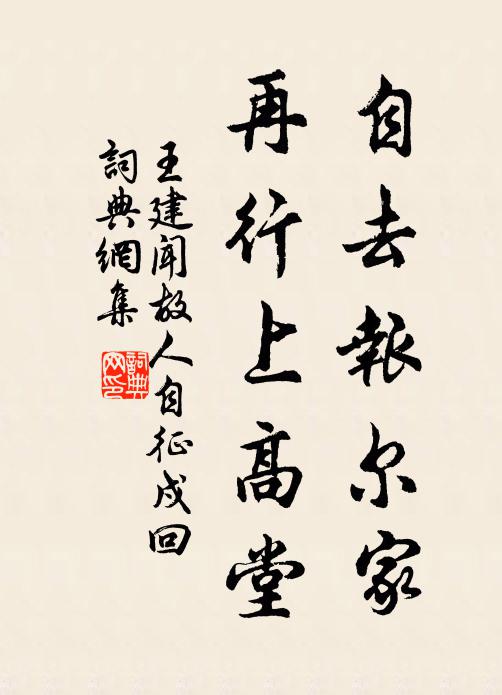 自去報尔家
再行上高堂
王建聞故人自征戍回
詞典網集
詞典网印